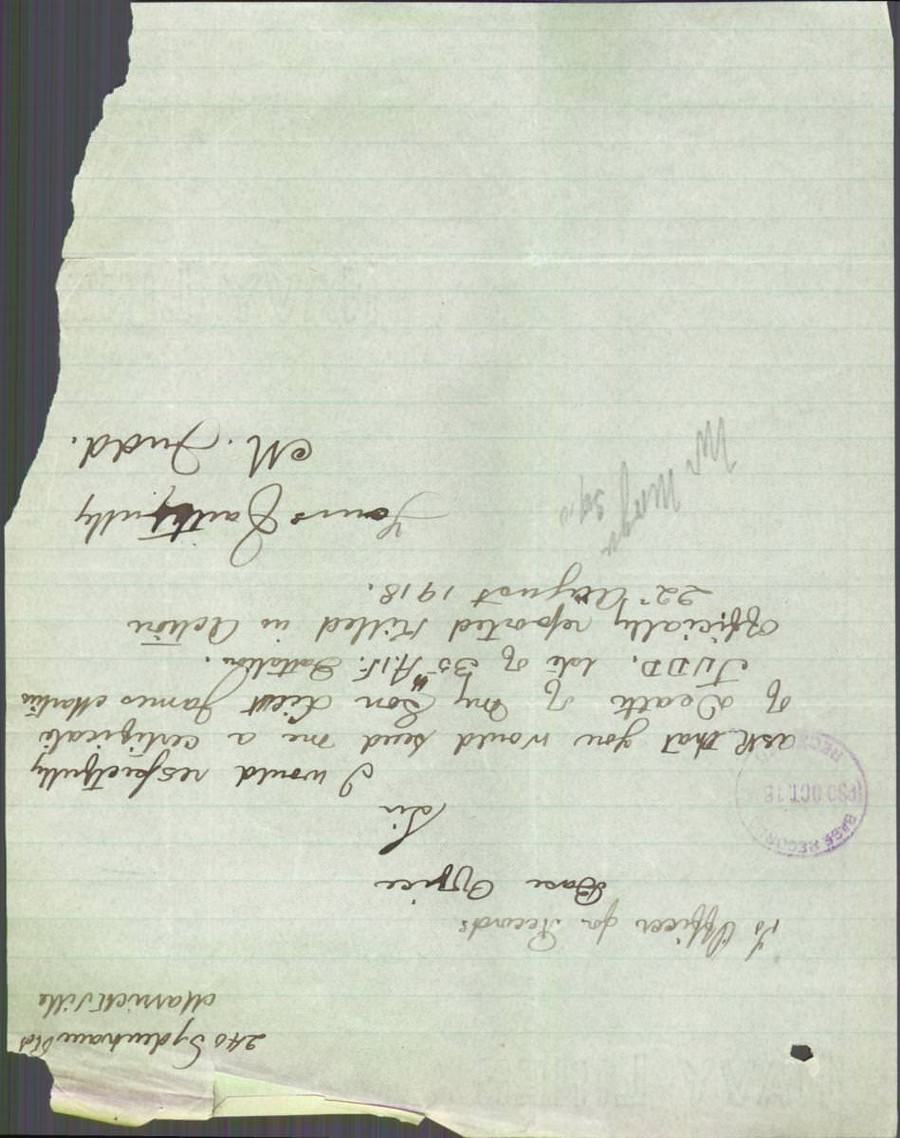 240 Sydenham Rd
Marrickville
To Officer for Records
Base Office
Sir
I would respectfully
ask that you would send me a certificate
of Death of my Son Lieut James Martin
JUDD. late of 35th A.I.F. Battalion.
Officially reported Killed in Action
22nd August 1918.
Yours Faithfully
M. Judd.
BASE RECORDS
30 OCT. 18